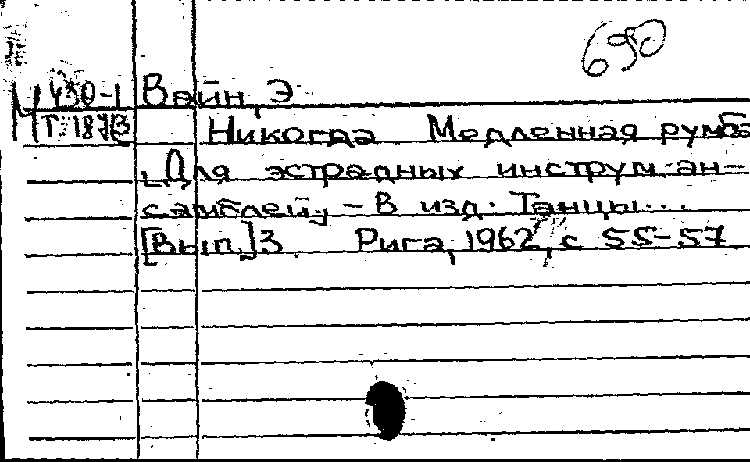 690
М 430-1 Вайн, Э
Т. 1873 Никогда. Медленная румба
[Для эстрадных инструм. ан-
самблей] - В изд. Танцы...
[Вып.] 3. Рига, 1962, с 55-57